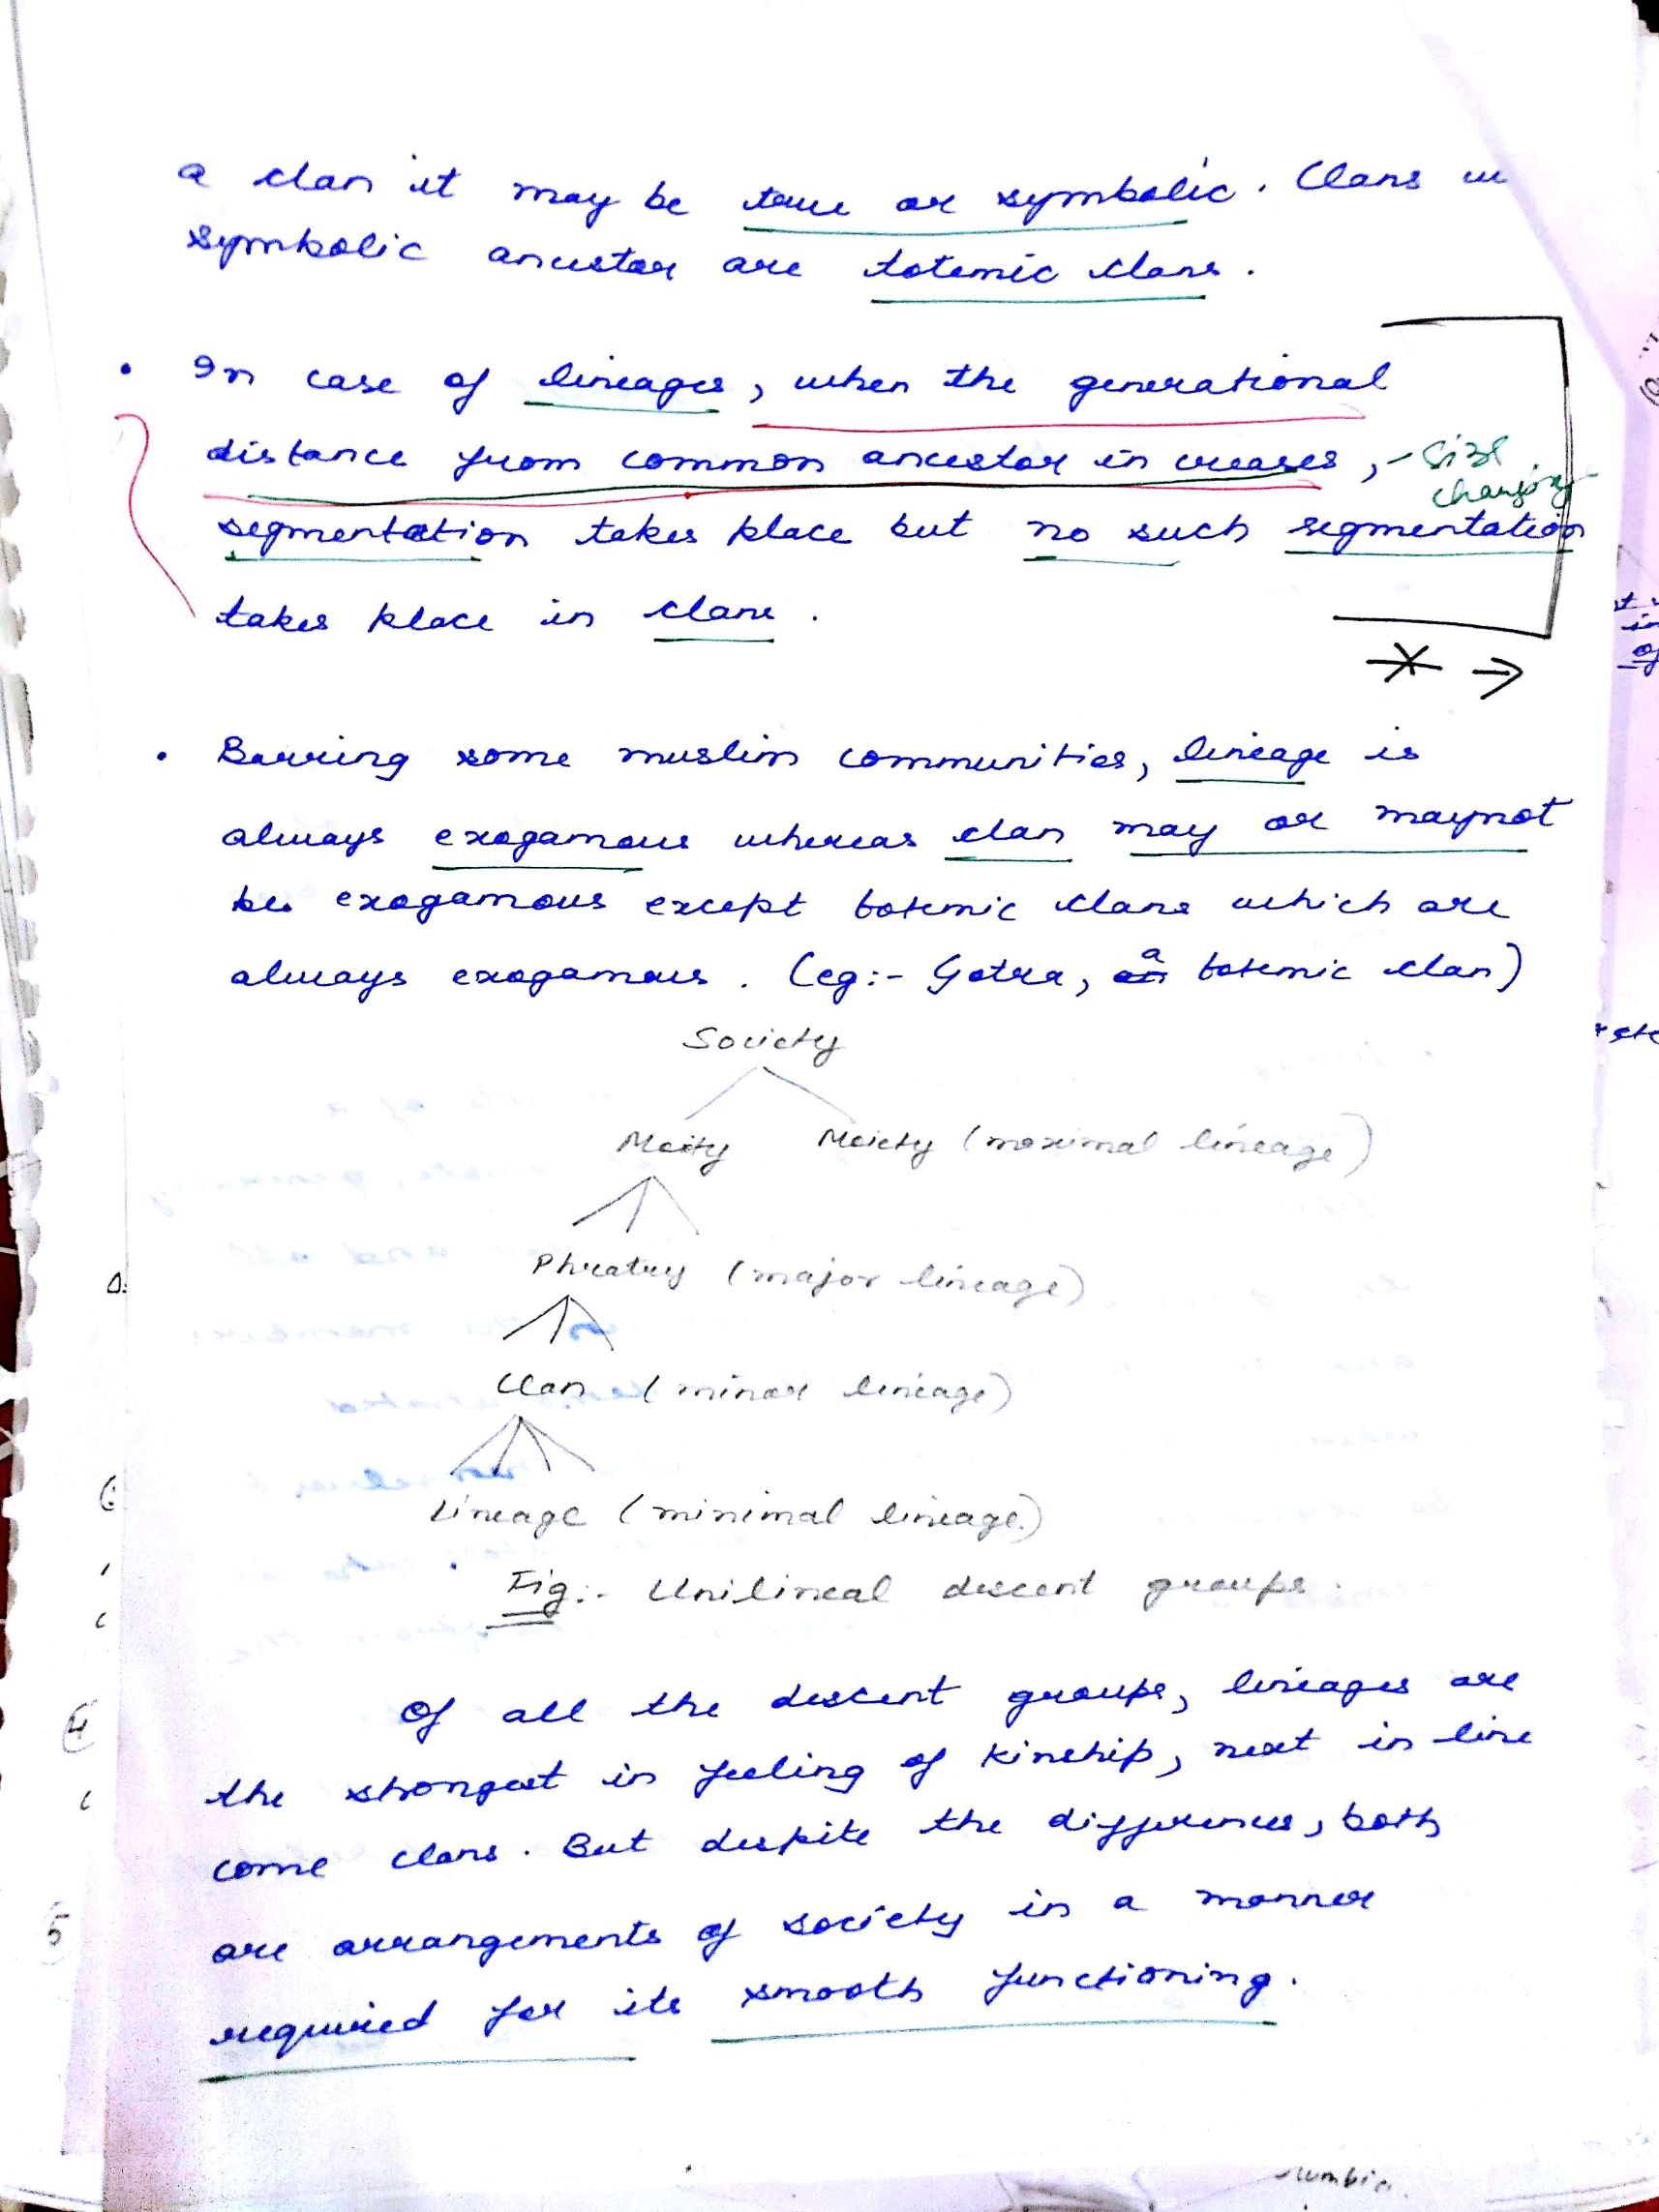 a clan it may be true or symbolic. Clans
symbolic ancestor are totemic clans.
• In case of lineages, when the generational
distance from common ancestor in creases, - Size
changing
segmentation takes place but no such segmentation
takes place in clans.
• Barring some muslim communities, lineage is
always exogamous whereas clan may or maynot
be exogamous except totemic clans which are
always exogamous. (eg:- Gotra, a totemic clan)
Society
Moity Moiety (maximal lineage)
Phratry (major lineage)
Clan (minor lineage)
Lineage (minimal lineage.)
Fig:- Unilineal descent groups.
Of all the descent groups, lineages are
the strongest in feeling of kinship, next in line
come clans. But despite the differences, both
are arrangements of society in a manner
required for its smooth functioning.